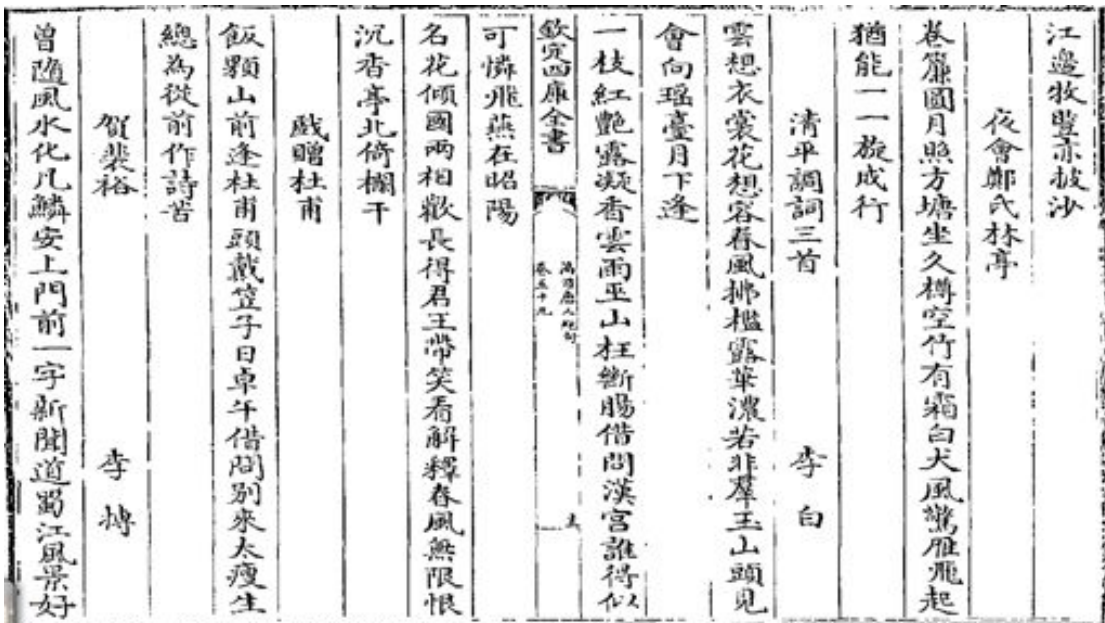 江邊牧豎亦披沙
夜會鄭氏林亭
卷簾圓月照方塘坐久樽空竹有霜白犬風驚雁飛起
猶能一一旋成行
清平調詞三首 李白
雲想衣裳花想容春風拂檻露華濃若非羣玉山頭見
會向瑶臺月下逢
一枝紅艷露凝香雲雨巫山枉斷腸借問漢宮誰得似
欽定四庫全書
萬首唐人絶句
卷五十九
可憐飛燕在昭陽
名花傾國兩相歡長得君王帶笑看解釋春風無限恨
沉香亭北倚欄干
戲贈杜甫
飯顆山前逢杜甫頭戴笠子日卓午借問别來太瘦生
總為從前作詩苦
賀裴裕 李愽
曽隨風水化凡鱗安上門前一字新聞道蜀江風景好